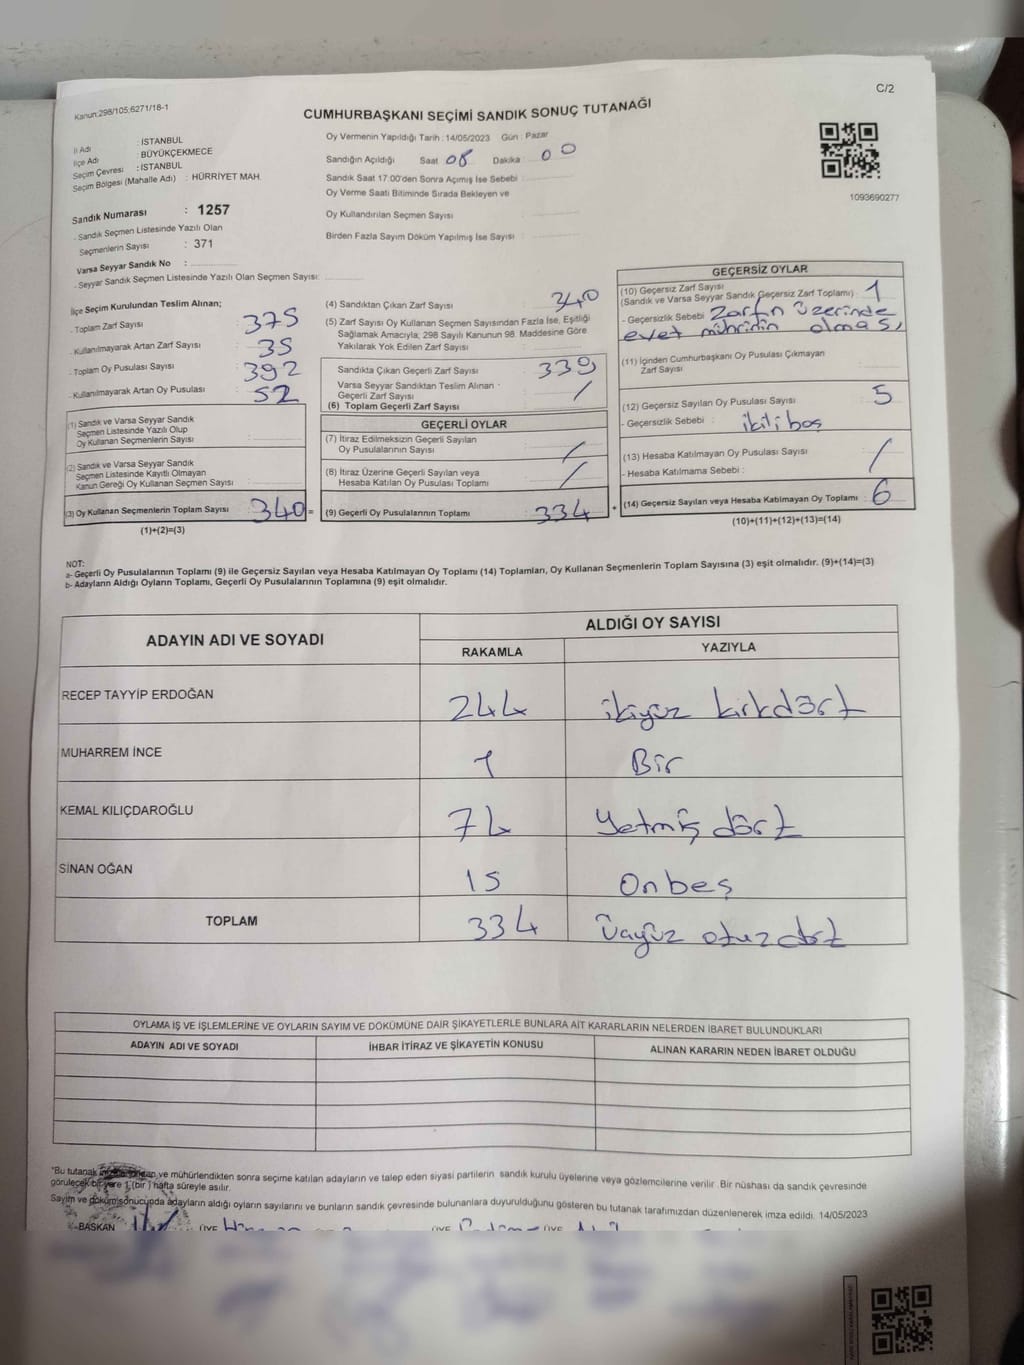 Kanun:298/105;6271/18-1
C/2
CUMHURBAŞKANI SEÇİMİ SANDIK SONUÇ TUTANAĞI
İl Adı : İSTANBUL
İlçe Adı : BÜYÜKÇEKMECE
Seçim Çevresi : İSTANBUL
Seçim Bölgesi (Mahalle Adı) : HÜRRİYET MAH.
Sandık Numarası : 1257
- Sandık Seçmen Listesinde Yazılı Olan
Seçmenlerin Sayısı : 371
Varsa Seyyar Sandık No :
- Seyyar Sandık Seçmen Listesinde Yazılı Olan Seçmen Sayısı:
Oy Vermenin Yapıldığı Tarih : 14/05/2023 Gün : Pazar
Sandığın Açıldığı Saat 08 Dakika : 00
Sandık Saat 17:00'den Sonra Açımış İse Sebebi :
Oy Verme Saati Bitiminde Sırada Bekleyen ve
Oy Kullandırılan Seçmen Sayısı
Birden Fazla Sayım Döküm Yapılmış İse Sayısı :
1093690277
İlçe Seçim Kurulundan Teslim Alınan;
- Toplam Zarf Sayısı : 375
- Kullanılmayarak Artan Zarf Sayısı : 35
- Toplam Oy Pusulası Sayısı : 392
- Kullanılmayarak Artan Oy Pusulası : 52
(1) Sandık ve Varsa Seyyar Sandık
Seçmen Listesinde Yazılı Olup
Oy Kullanan Seçmenlerin Sayısı
(2) Sandık ve Varsa Seyyar Sandık
Seçmen Listesinde Kayıtlı Olmayan
Kanun Gereği Oy Kullanan Seçmen Sayısı
(3) Oy Kullanan Seçmenlerin Toplam Sayısı 340 =
(1)+(2)=(3)
(4) Sandıktan Çıkan Zarf Sayısı : 340
(5) Zarf Sayısı Oy Kullanan Seçmen Sayısından Fazla İse, Eşitliği
Sağlamak Amacıyla; 298 Sayılı Kanunun 98. Maddesine Göre
Yakılarak Yok Edilen Zarf Sayısı
Sandıkta Çıkan Geçerli Zarf Sayısı : 339
Varsa Seyyar Sandıktan Teslim Alınan
Geçerli Zarf Sayısı : /
(6) Toplam Geçerli Zarf Sayısı
GEÇERLİ OYLAR
(7) İtiraz Edilmeksizin Geçerli Sayılan
Oy Pusulalarının Sayısı : /
(8) İtiraz Üzerine Geçerli Sayılan veya
Hesaba Katılan Oy Pusulası Toplamı : /
(9) Geçerli Oy Pusulalarının Toplamı : 334 +
GEÇERSİZ OYLAR
(10) Geçersiz Zarf Sayısı
(Sandık ve Varsa Seyyar Sandık Geçersiz Zarf Toplamı) : 1
- Geçersizlik Sebebi Zarfın üzerinde
evet mührünün olması
(11) İçinden Cumhurbaşkanı Oy Pusulası Çıkmayan
Zarf Sayısı
(12) Geçersiz Sayılan Oy Pusulası Sayısı : 5
- Geçersizlik Sebebi : ikili boş
(13) Hesaba Katılmayan Oy Pusulası Sayısı : /
- Hesaba Katılmama Sebebi :
(14) Geçersiz Sayılan veya Hesaba Katılmayan Oy Toplamı : 6
(10)+(11)+(12)+(13)=(14)
NOT:
a- Geçerli Oy Pusulalarının Toplamı (9) ile Geçersiz Sayılan veya Hesaba Katılmayan Oy Toplamı (14) Toplamları, Oy Kullanan Seçmenlerin Toplam Sayısına (3) eşit olmalıdır. (9)+(14)=(3)
b- Adayların Aldığı Oyların Toplamı, Geçerli Oy Pusulalarının Toplamına (9) eşit olmalıdır.
ADAYIN ADI VE SOYADI
ALDIĞI OY SAYISI
RAKAMLA YAZIYLA
RECEP TAYYİP ERDOĞAN 244 ikiyüz kırkdört
MUHARREM İNCE 1 Bir
KEMAL KILIÇDAROĞLU 74 Yetmiş dört
SİNAN OĞAN 15 Onbeş
TOPLAM 334 Üçyüz otuzdört
OYLAMA İŞ VE İŞLEMLERİNE VE OYLARIN SAYIM VE DÖKÜMÜNE DAİR ŞİKAYETLERLE BUNLARA AİT KARARLARIN NELERDEN İBARET BULUNDUKLARI
ADAYIN ADI VE SOYADI İHBAR İTİRAZ VE ŞİKAYETİN KONUSU ALINAN KARARIN NEDEN İBARET OLDUĞU
*Bu tutanak ve mühürlendikten sonra seçime katılan adayların ve talep eden siyasi partilerin sandık kurulu üyelerine veya gözlemcilerine verilir. Bir nüshası da sandık çevresinde
görülecek bir yere 1 (bir) hafta süreyle asılır.
Sayım ve döküm sonucunda adayların aldığı oyların sayılarını ve bunların sandık çevresinde bulunanlara duyurulduğunu gösteren bu tutanak tarafımızdan düzenlenerek imza edildi. 14/05/2023
BAŞKAN ÜYE ÜYE ÜYE